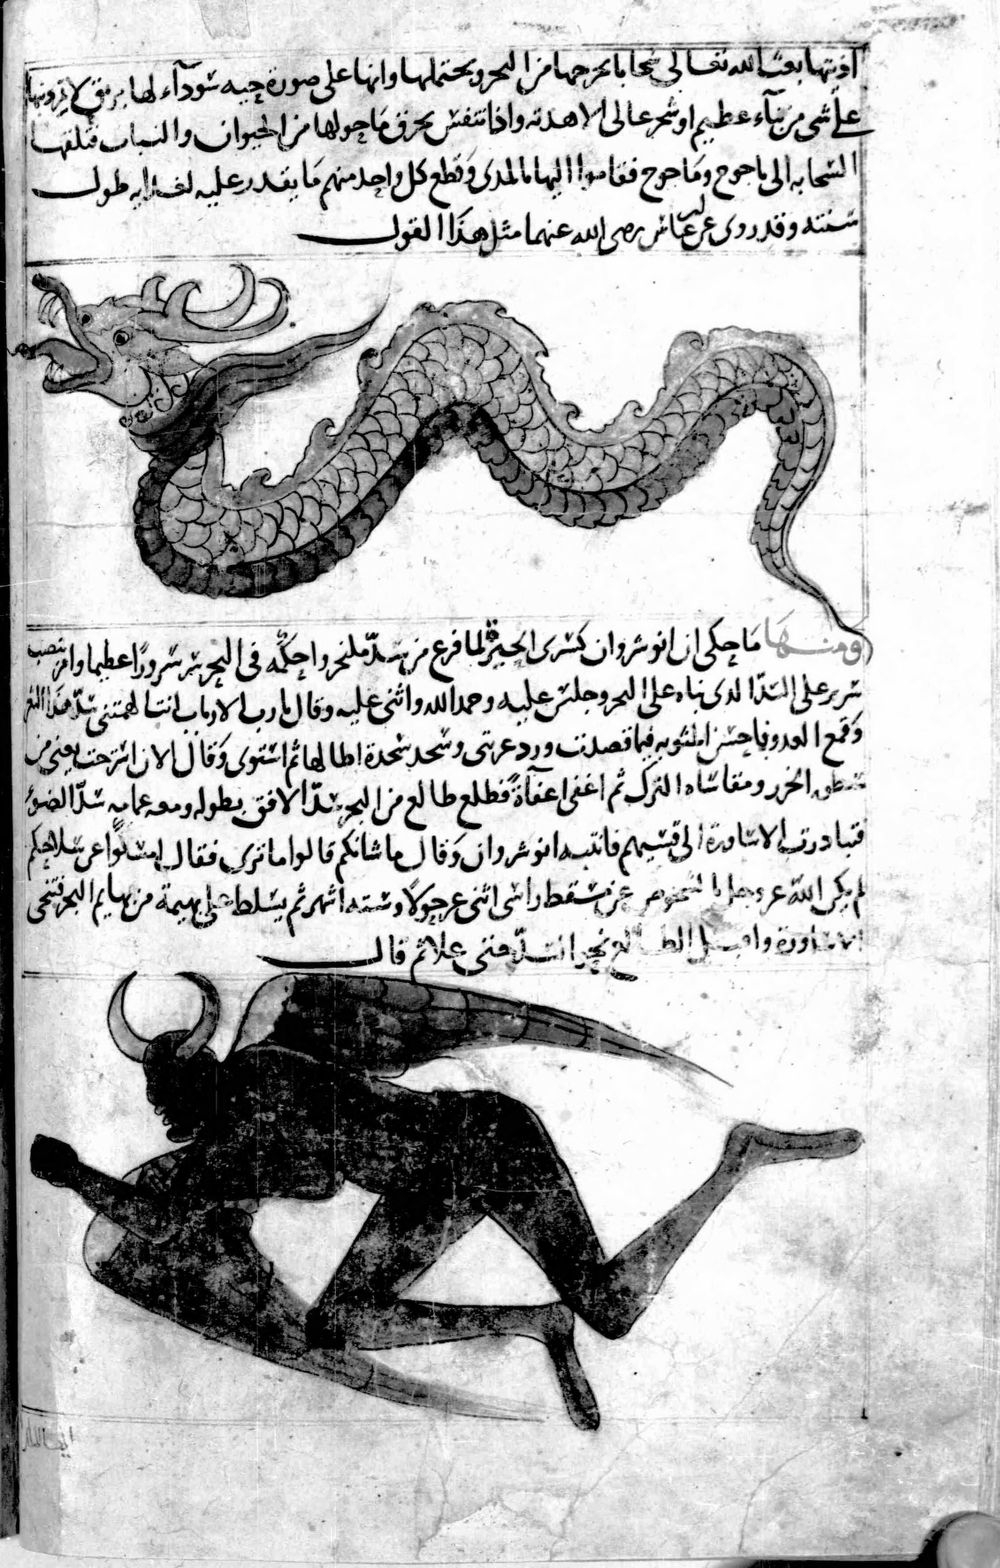 اذيتها بعث الله تعالى سحابا يخرجها من البحر ويحتملها وانها على صورة حية سودآء لها بريق لا
على شى من بنآء عظيم او شجر عالى الا هدته واذا تنفس يحرق ما حولها من الحيوان والنبات فتلقها
السحابه الى ياجوج وماجوج فقاموا اليها بالمدى وقطع كل واحد منهم ما يقدر عليه لغذايه طول
سنته وقد روى عن ابن عباس رضى الله عنهما مثل هذا القول
ومنها ما حكى ان انوشروان كسرى الخير لما فرغ من سد بلنجر واحكمه فى البحر سر سرورًا عظيما وامر بنصب
سرير على السد الذى بناه على البحر وجلس عليه وحمد الله واثنى عليه وقال يا رب الارباب انت الهمتنى سد هذا الثغر
وقمع العدو فاحسن المثوبه فيما قصدت ورد غربتى وسجد سجدة اطالها ثم استوى وقال الان استرحت يعنى من
الخزر ومقاساه الترك ثم اغفى اغفآءة فطلع طالع من البحر سد الافق بطوله ومعه غمامه سد الضوء
فتبادرت الاساورة الى قسيهم فانتبه انوشروان وقال ما شانكم قالوا ما ترى فقال امسكوا عن سلاحكم
لم يكن الله عز وجل اثنى عشر حولًا وستة اشهر ثم يسلط على بهيمة من بهايم البحر فتنحى
الاساورة واقبل الطالع نحو السد حتى علا ثم قال